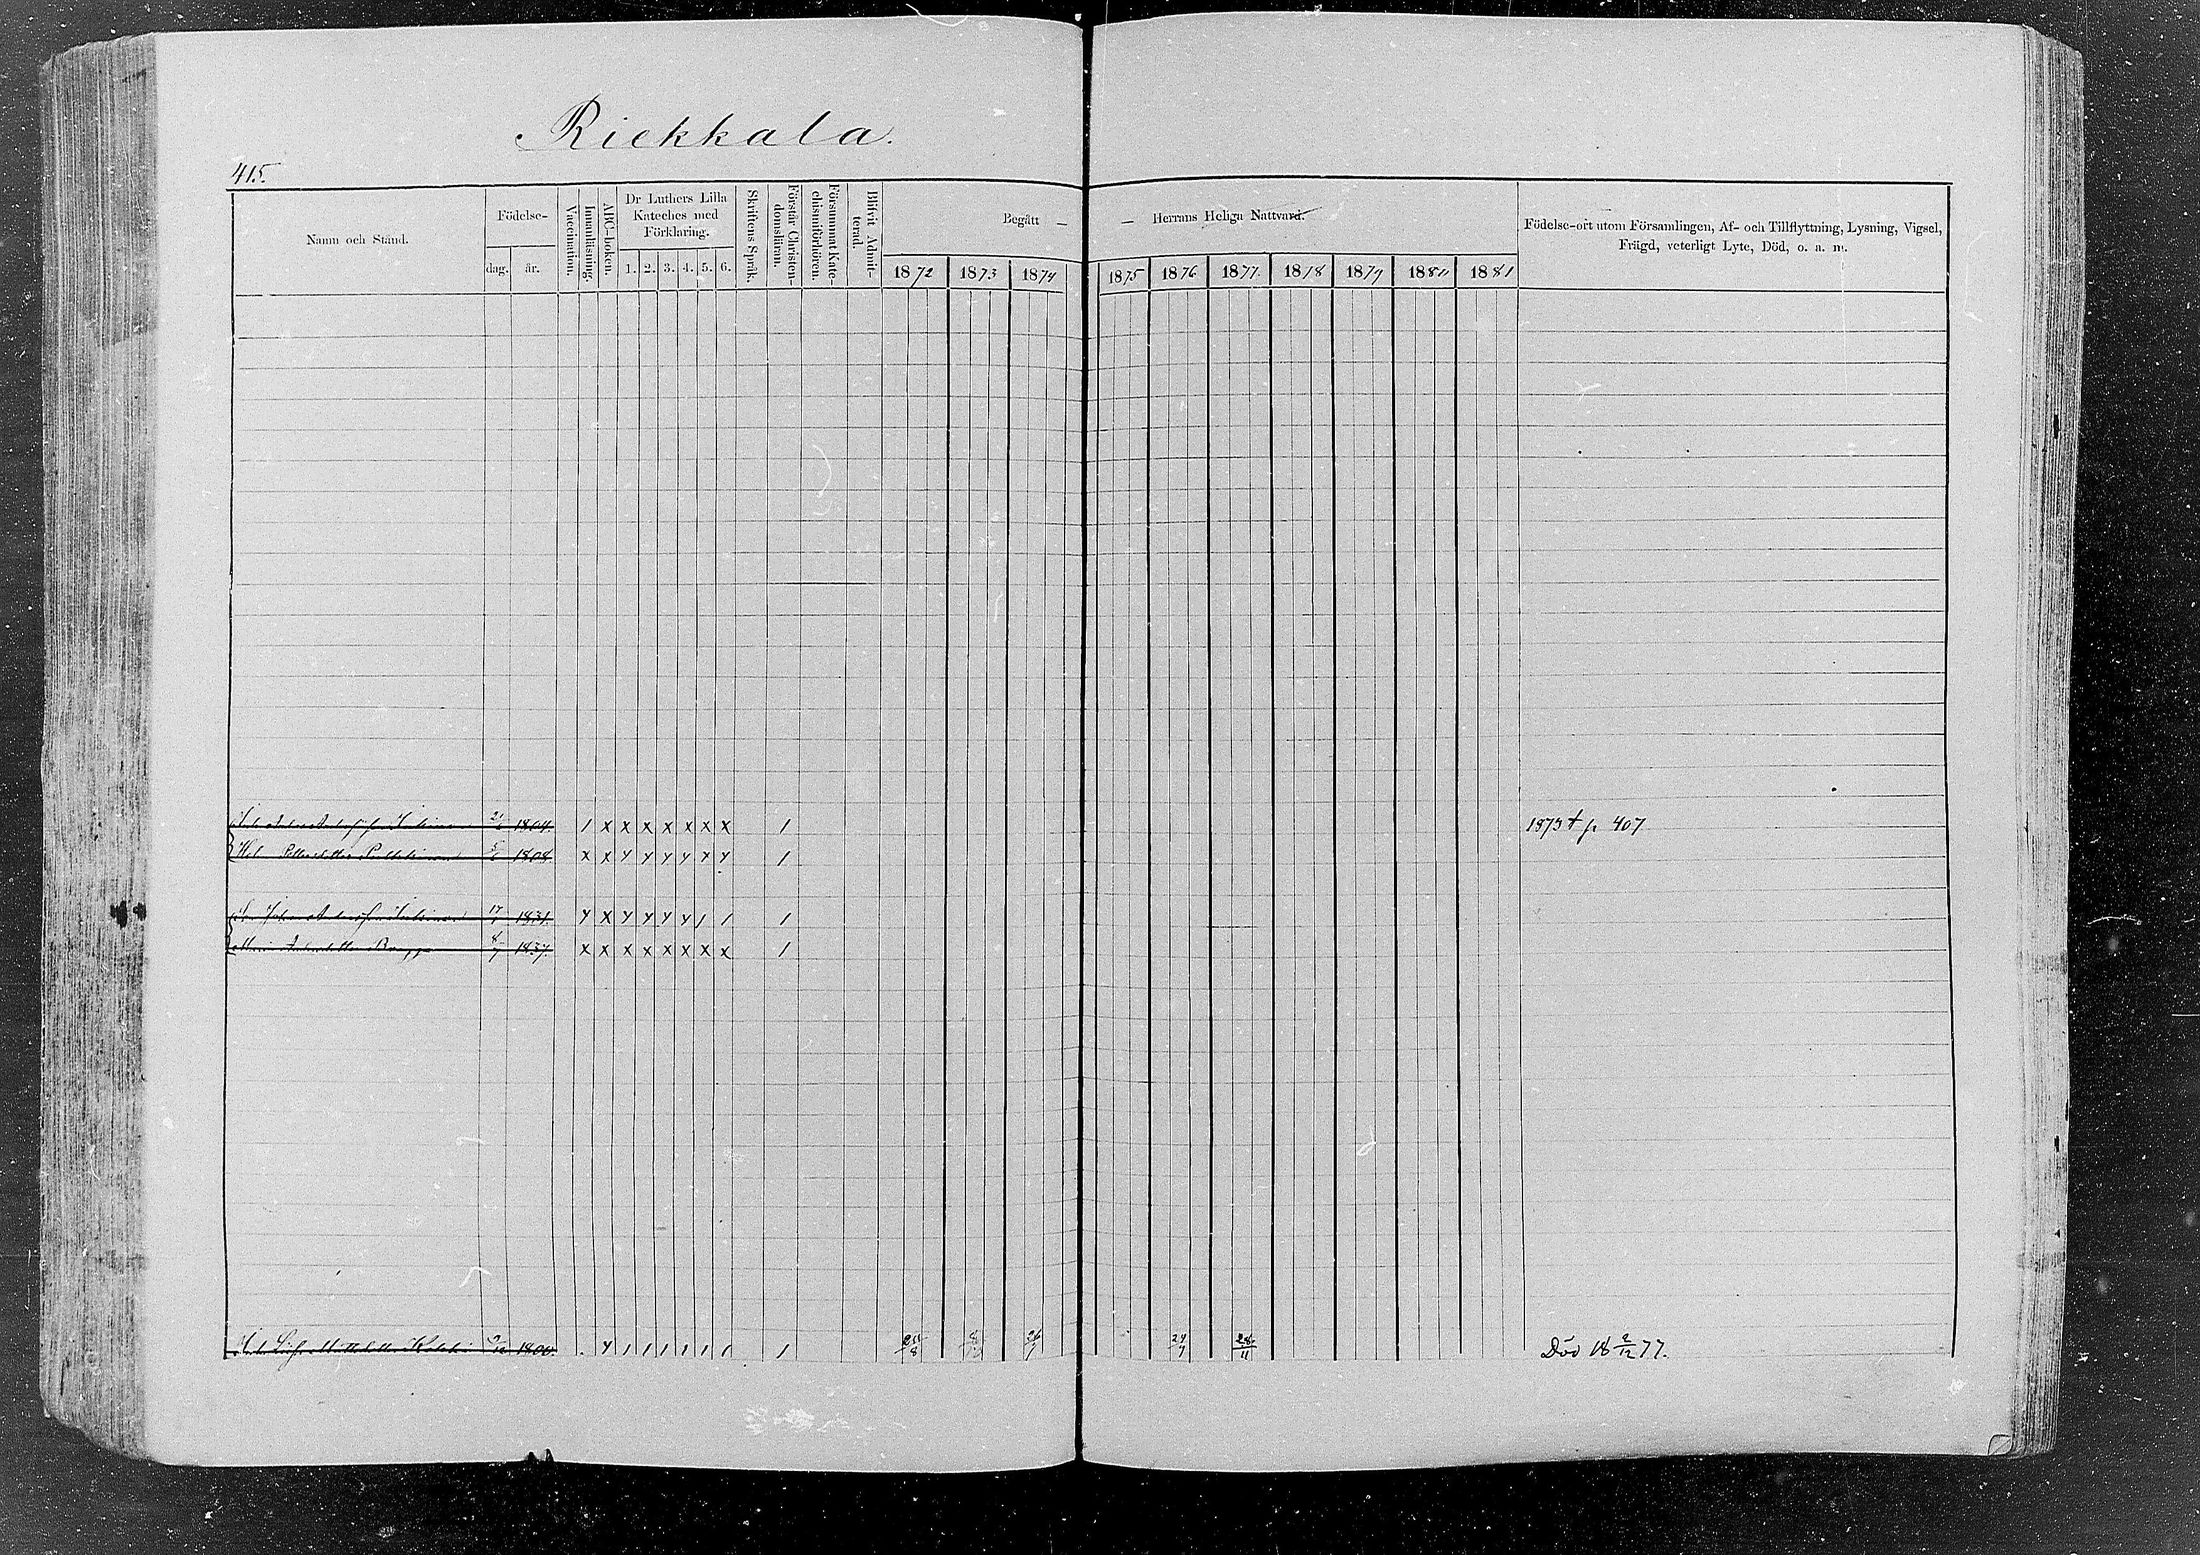 Riekkala.
415.
Namn och Stånd.
Födelse-
dag. år.
Vaccination.
Innanläsning.
ABC-boken.
Dr Luthers Lilla
Kateches med
Förklaring.
1. 2. 3. 4. 5. 6.
Skriftens Språk.
Förstår Christen-
domsläran.
Försummat Kate-
chismiförhören.
Blifvit Admit-
terad.
Begått — — Herrans Heliga Nattvard.
1872 1873 1874 1875 1876 1877 1878 1879 1880 1881
Födelse-ort utom Församlingen, Af- och Tillflyttning, Lysning, Vigsel,
Frägd, veterligt Lyte, Död, o. a. m.
1804. 1 x x x x x x x 1 1873 † p 407
Hel. 1808 x x y y y y x y 1
17 1831. y x y y y y 1 1 1
8 1837. x x x x x x x x 1
1800. y 1 1 1 1 1 1 1 25/8 24/7 28/11 Död 18 2/12 77.